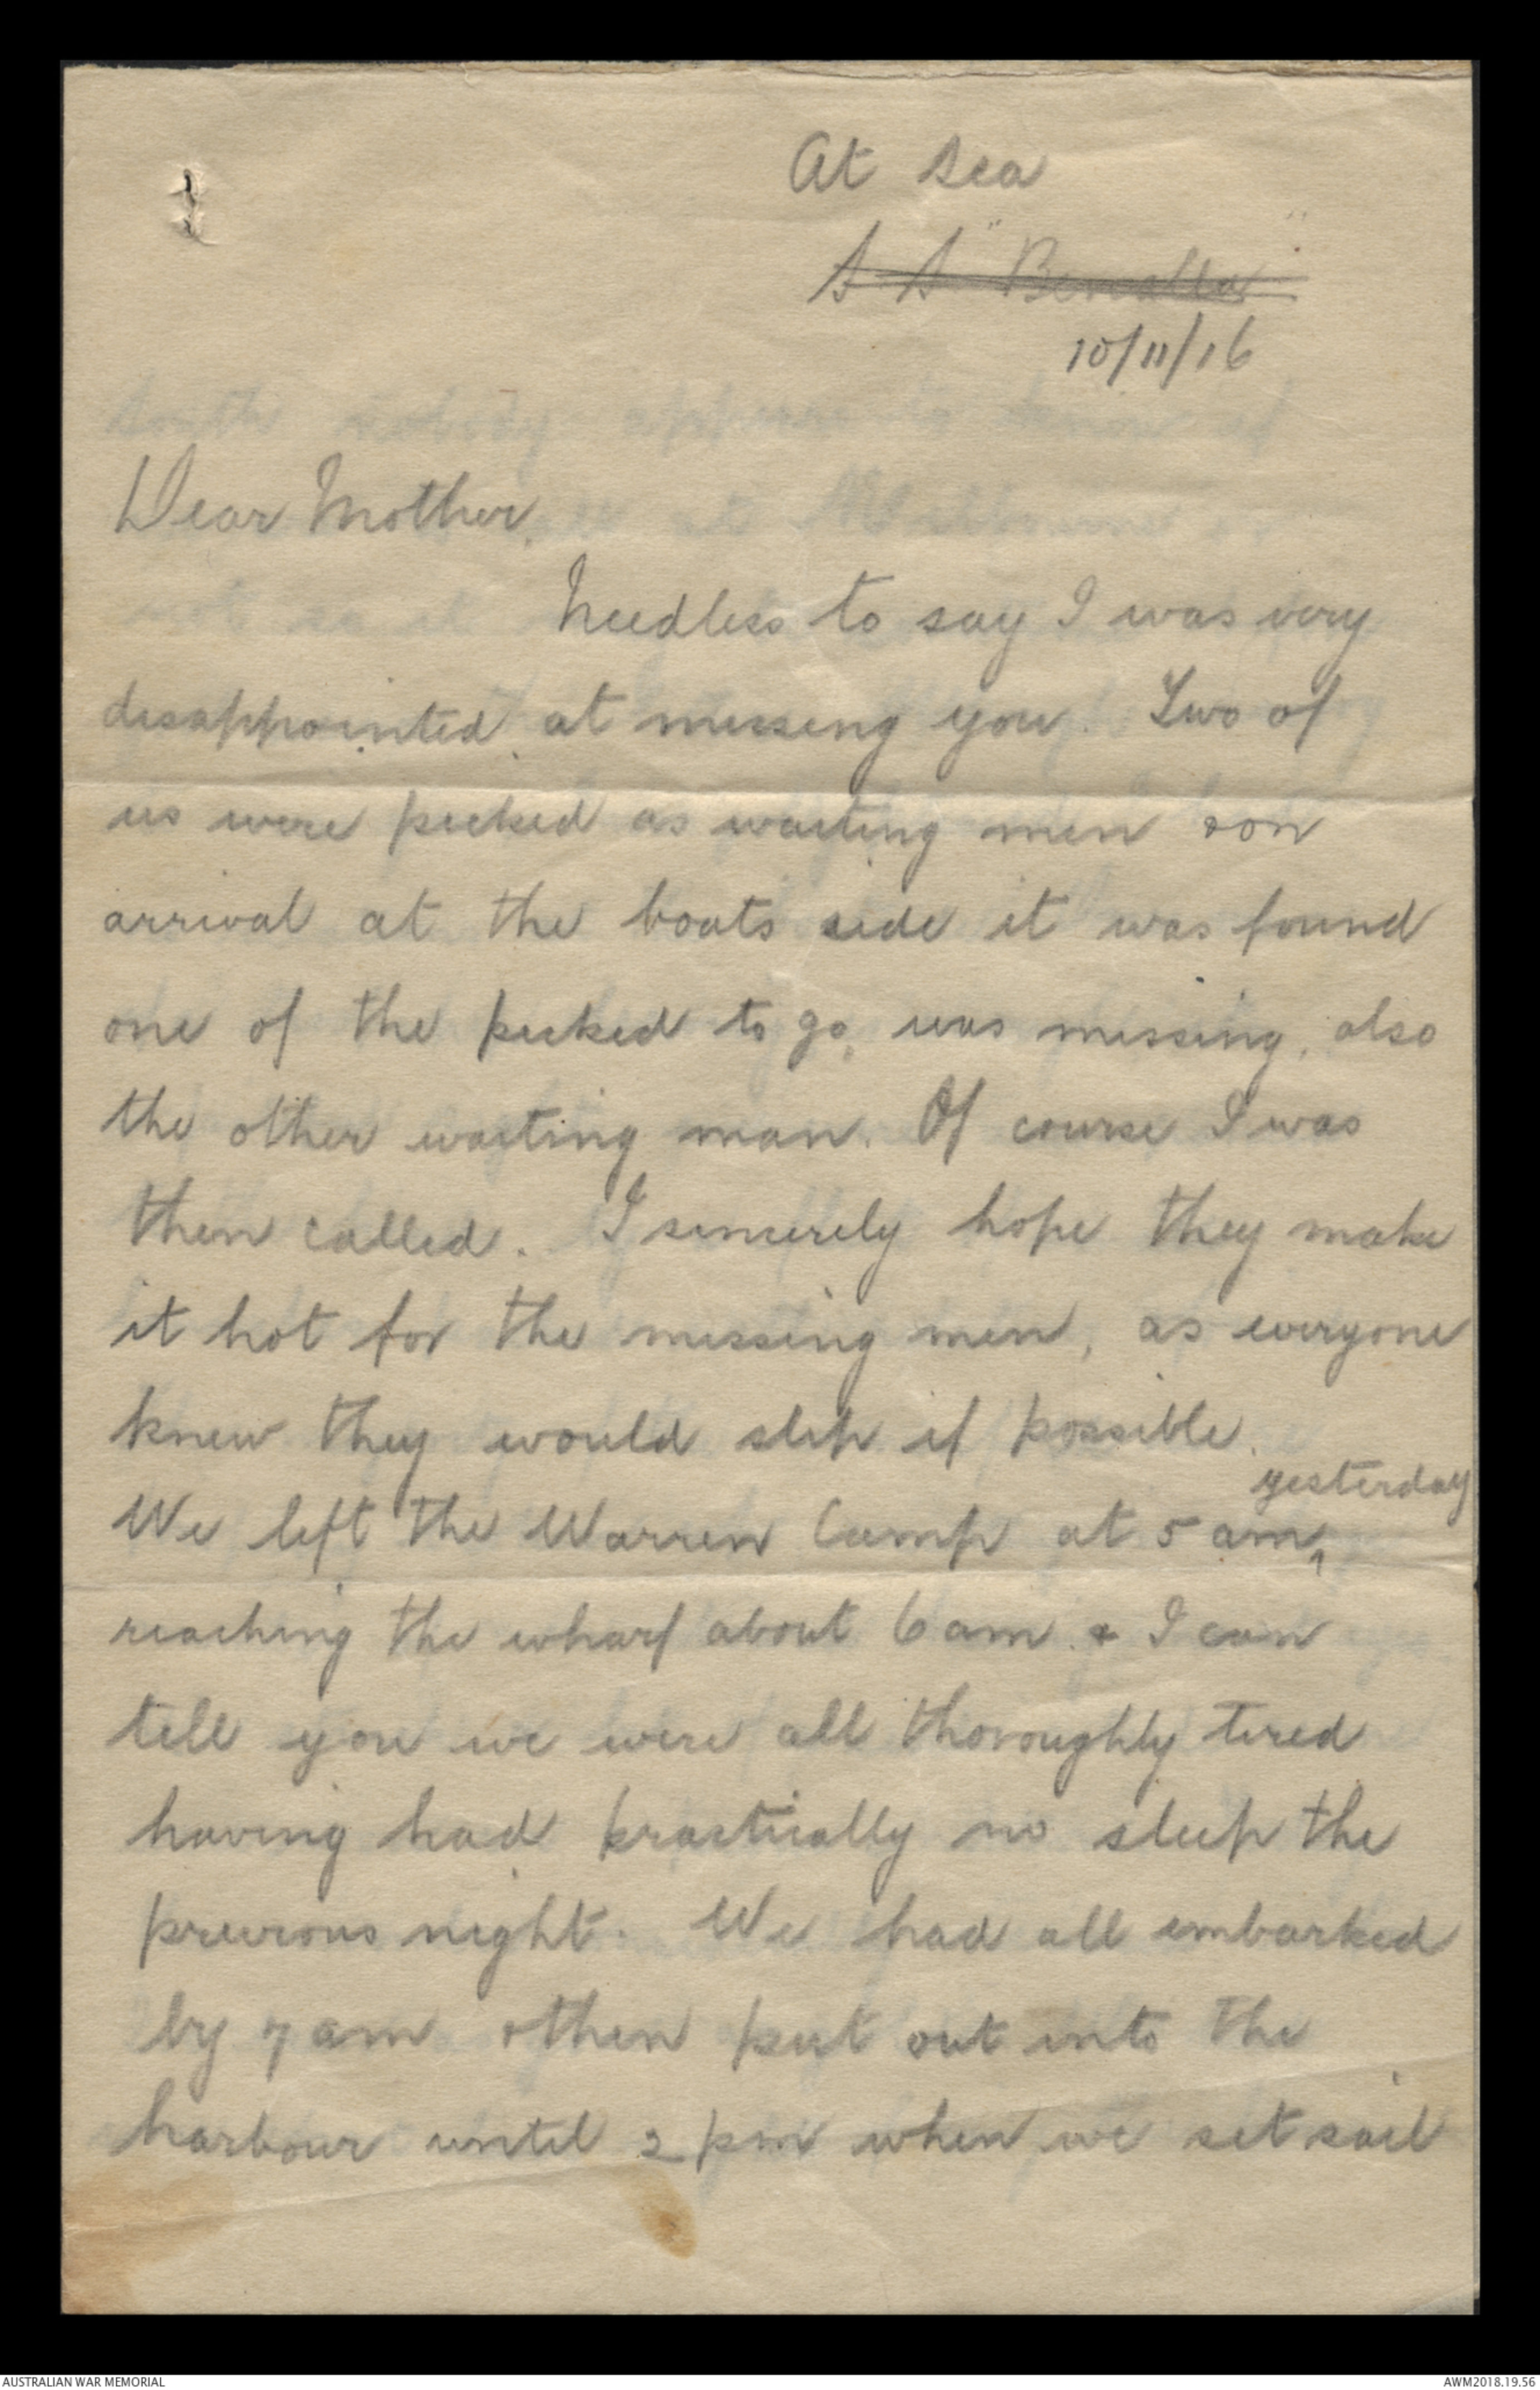 At Sea
S S "Benalla"
10/11/16
Dear Mother,
Needless to say I was very
disappointed at missing you. Two of
us were picked as waiting men & on
arrival at the boats side it was found
one of the picked to go, was missing, also
the other waiting man. Of course I was
then called. I sincerely hope they make
it hot for the missing men, as everyone
knew they would slip if possible.
yesterday
We left the Warren Camp at 5 am
reaching the wharf about 6 am. & I can
tell you we were all thoroughly tired
having had practically no sleep the
previous night. We had all embarked
by 7 am & then put out into the
harbour until 2 pm when we set sail
AUSTRALIAN WAR MEMORIAL
AWM2018.19.56